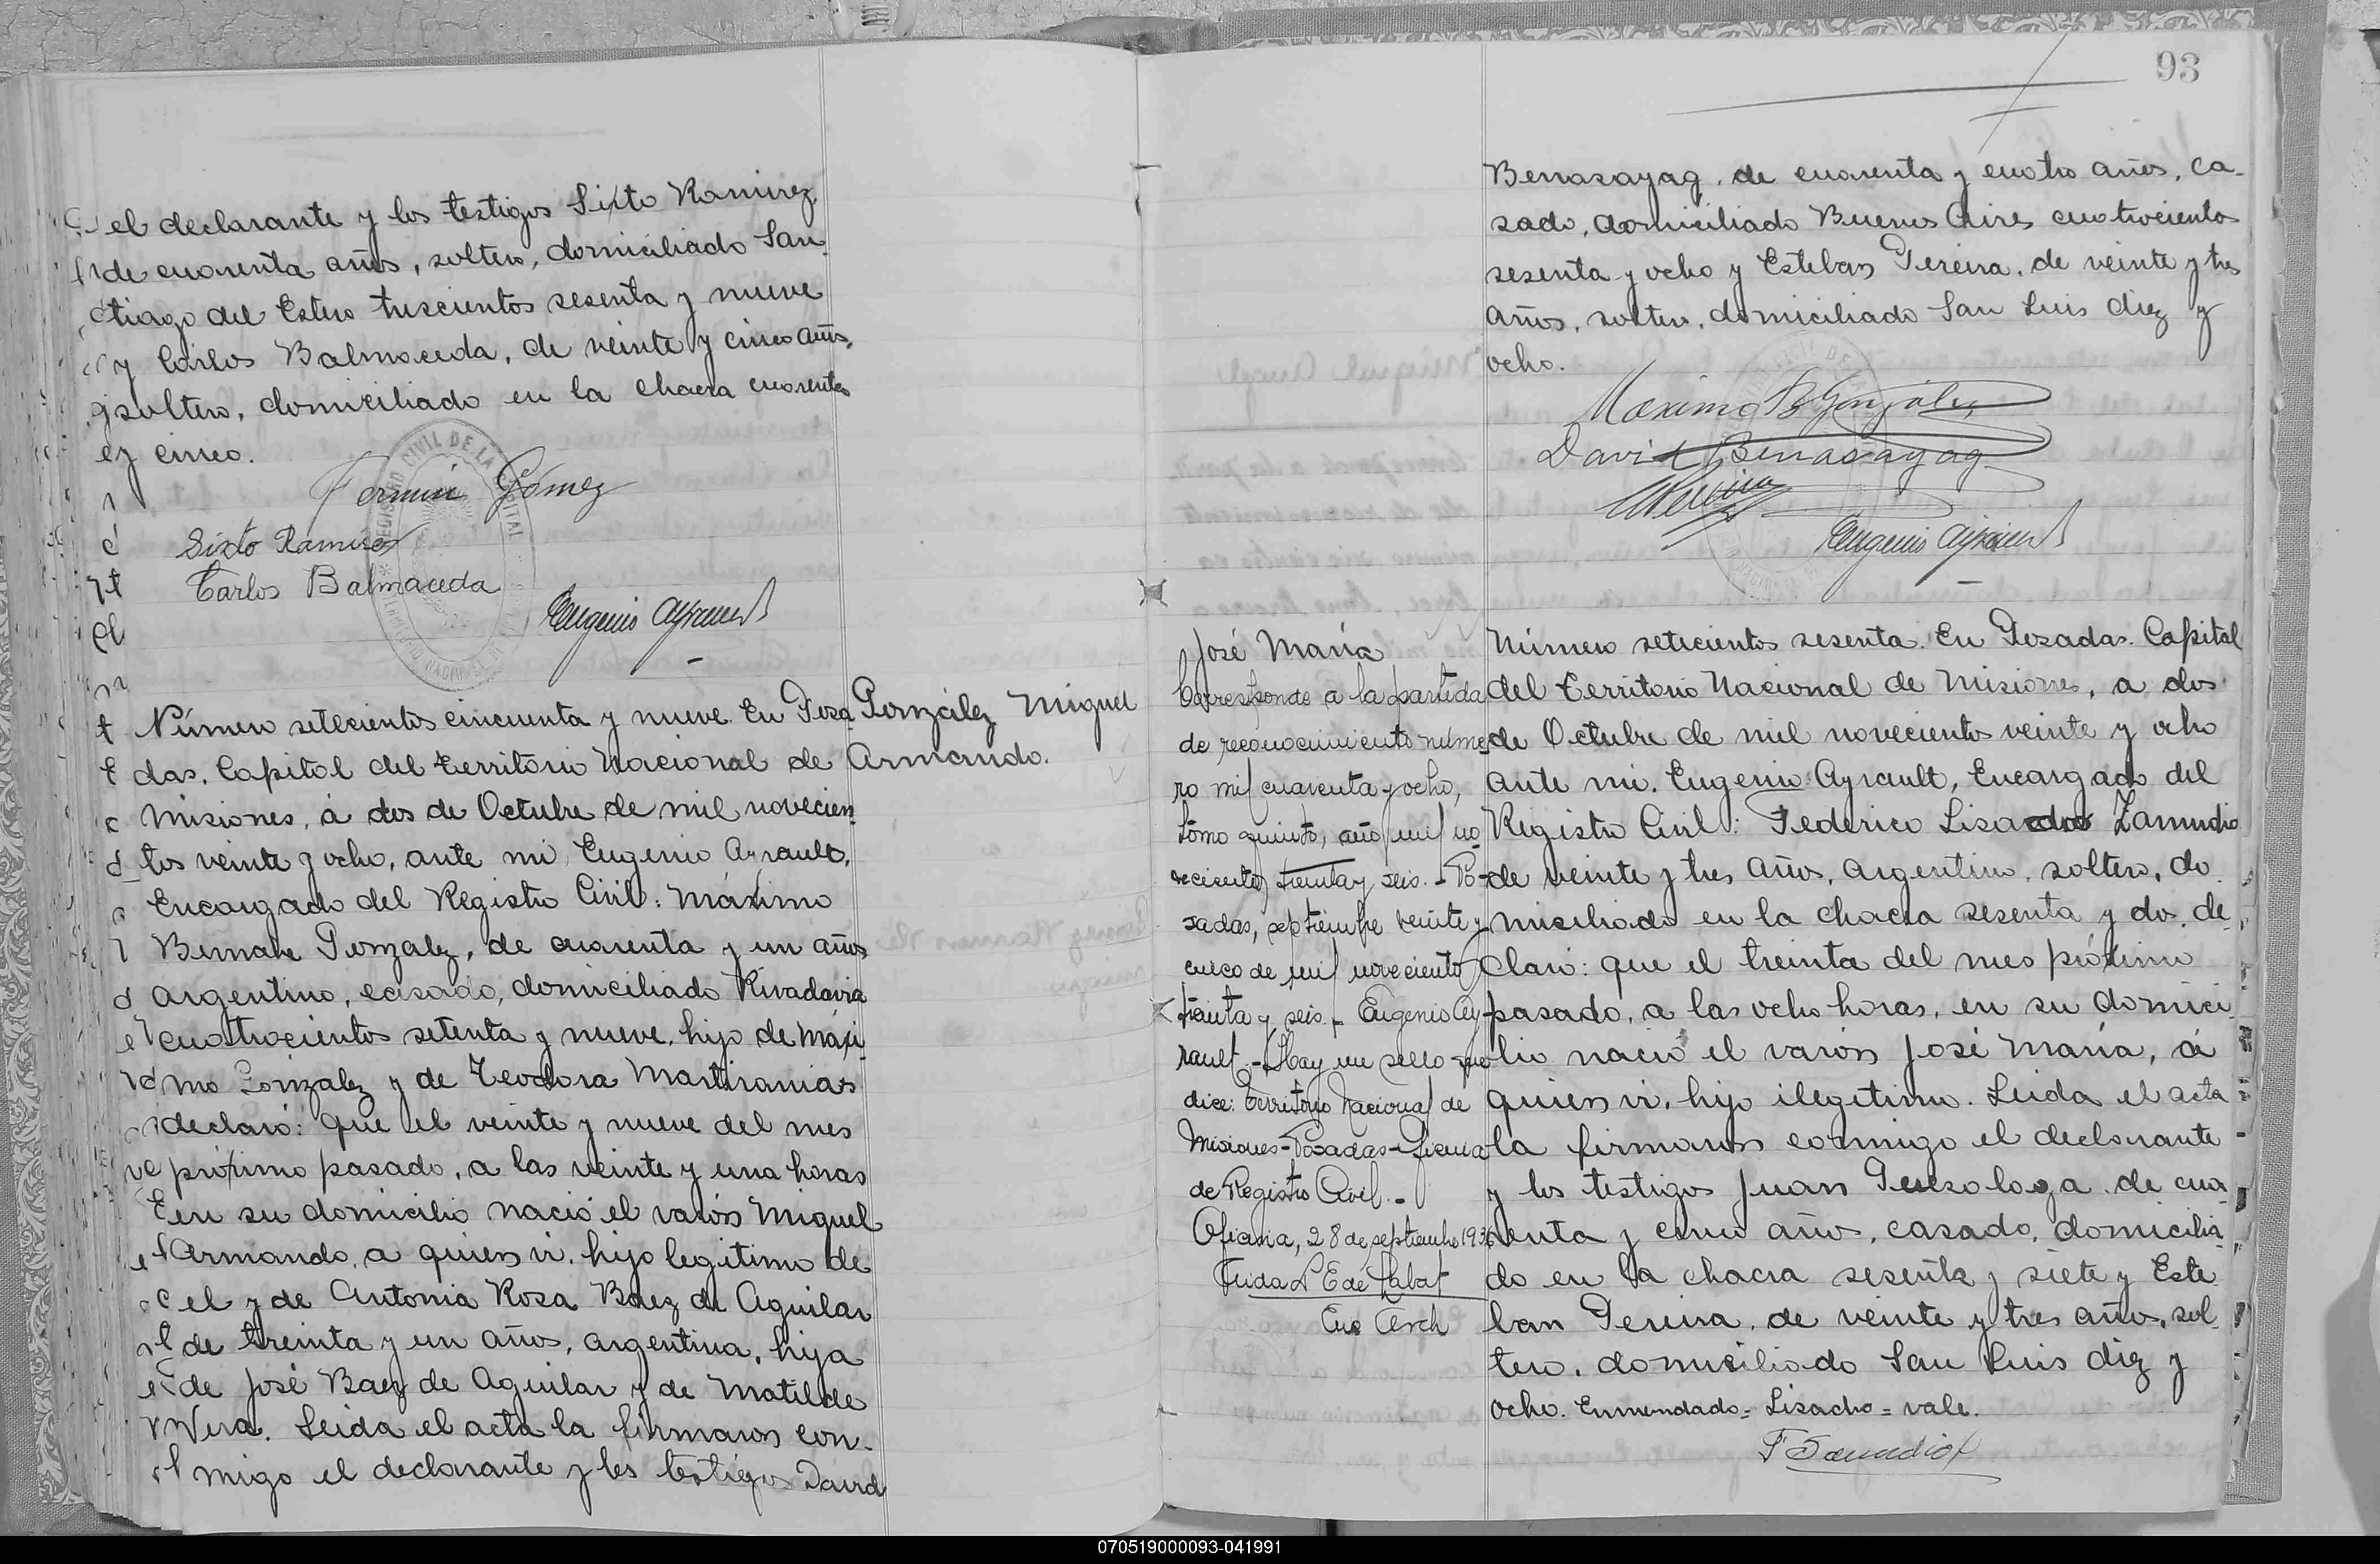 el declarante y los testigos Sixto Ramirez,
de cuarenta años, soltero, domiciliado San
tiago del Estero trescientos sesenta y nueve
y Carlos Balmaceda, de veinte y cinco años,
soltero, domiciliado en la chacra cuarenta
y cinco.
REGISTRO CIVIL DE LA CAPITAL
Fermin Gómez
Sixto Ramirez
Carlos Balmaceda
Eugenio Ayrault
Número setecientos cincuenta y nueve. En Posa
das, Capital del Territorio Nacional de
Misiones, á dos de Octubre de mil novecien
tos veinte y ocho, ante mi, Eugenio Ayrault,
Encargado del Registro Civil: Máximo
Gonzalez, de cuarenta y un años
argentino, casado, domiciliado Rivadavia
cuatrocientos setenta y nueve, hijo de Máxi
mo Gonzalez y de Teodora
declaró: Que el veinte y nueve del mes
próximo pasado, a las veinte y una horas
en su domicilio nació el varón Miguel
Armando, a quien vi, hijo legitimo de
el y de Antonia Rosa Baez de Aguilar
de treinta y un años, argentina, hija
de José Baez de Aguilar y de Matilde
Vera. Leida el acta la firmaron con-
migo el declarante y los testigos David
González Miguel
Armando.
93
Benasayag, de cuarenta y cuatro años, ca-
sado, domiciliado Buenos Aires cuatrocientos
sesenta y ocho y Esteban Pereira, de veinte y tres
años, soltero, domiciliado San Luis diez y
ocho.
Maximo B González
David Benasayag
EPereira
Eugenio Ayrault
José María
Corresponde a la partida
de reconocimiento núme-
ro mil cuarenta y ocho,
tomo quinto, año mil no-
vecientos treinta y seis. - Po-
sadas, septiembre veinte y
cinco de mil novecientos
treinta y seis. - Eugenio Ay-
rault. - Hay un sello que
dice: Territorio Nacional de
Misiones - Posadas - Oficina
de Registro Civil. -
Oficina, 28 de septiembre 1936
Enc Arch
Número setecientos sesenta. En Posadas. Capital
del Territorio Nacional de Misiones, a dos
de Octubre de mil novecientos veinte y ocho
ante mi. Eugenio Ayrault, Encargado del
Registro Civil: Federico Lisandro Zamudio
de veinte y tres años, argentino, soltero, do
miciliado en la chacra sesenta y dos, de
claró: que el treinta del mes próximo
pasado, a las ocho horas, en su domici
lio nació el varón José María, á
quien vi, hijo ilegitimo. Leida el acta
la firmaron conmigo el declarante
y los testigos Juan de cua
renta y cinco años, casado, domicilia
do en la chacra sesenta y siete y Este
ban Pereira, de veinte y tres años, sol
tero, domiciliado San Luis diez y
ocho. Enmendado = = vale.
F Zamudio
070519000093-041991